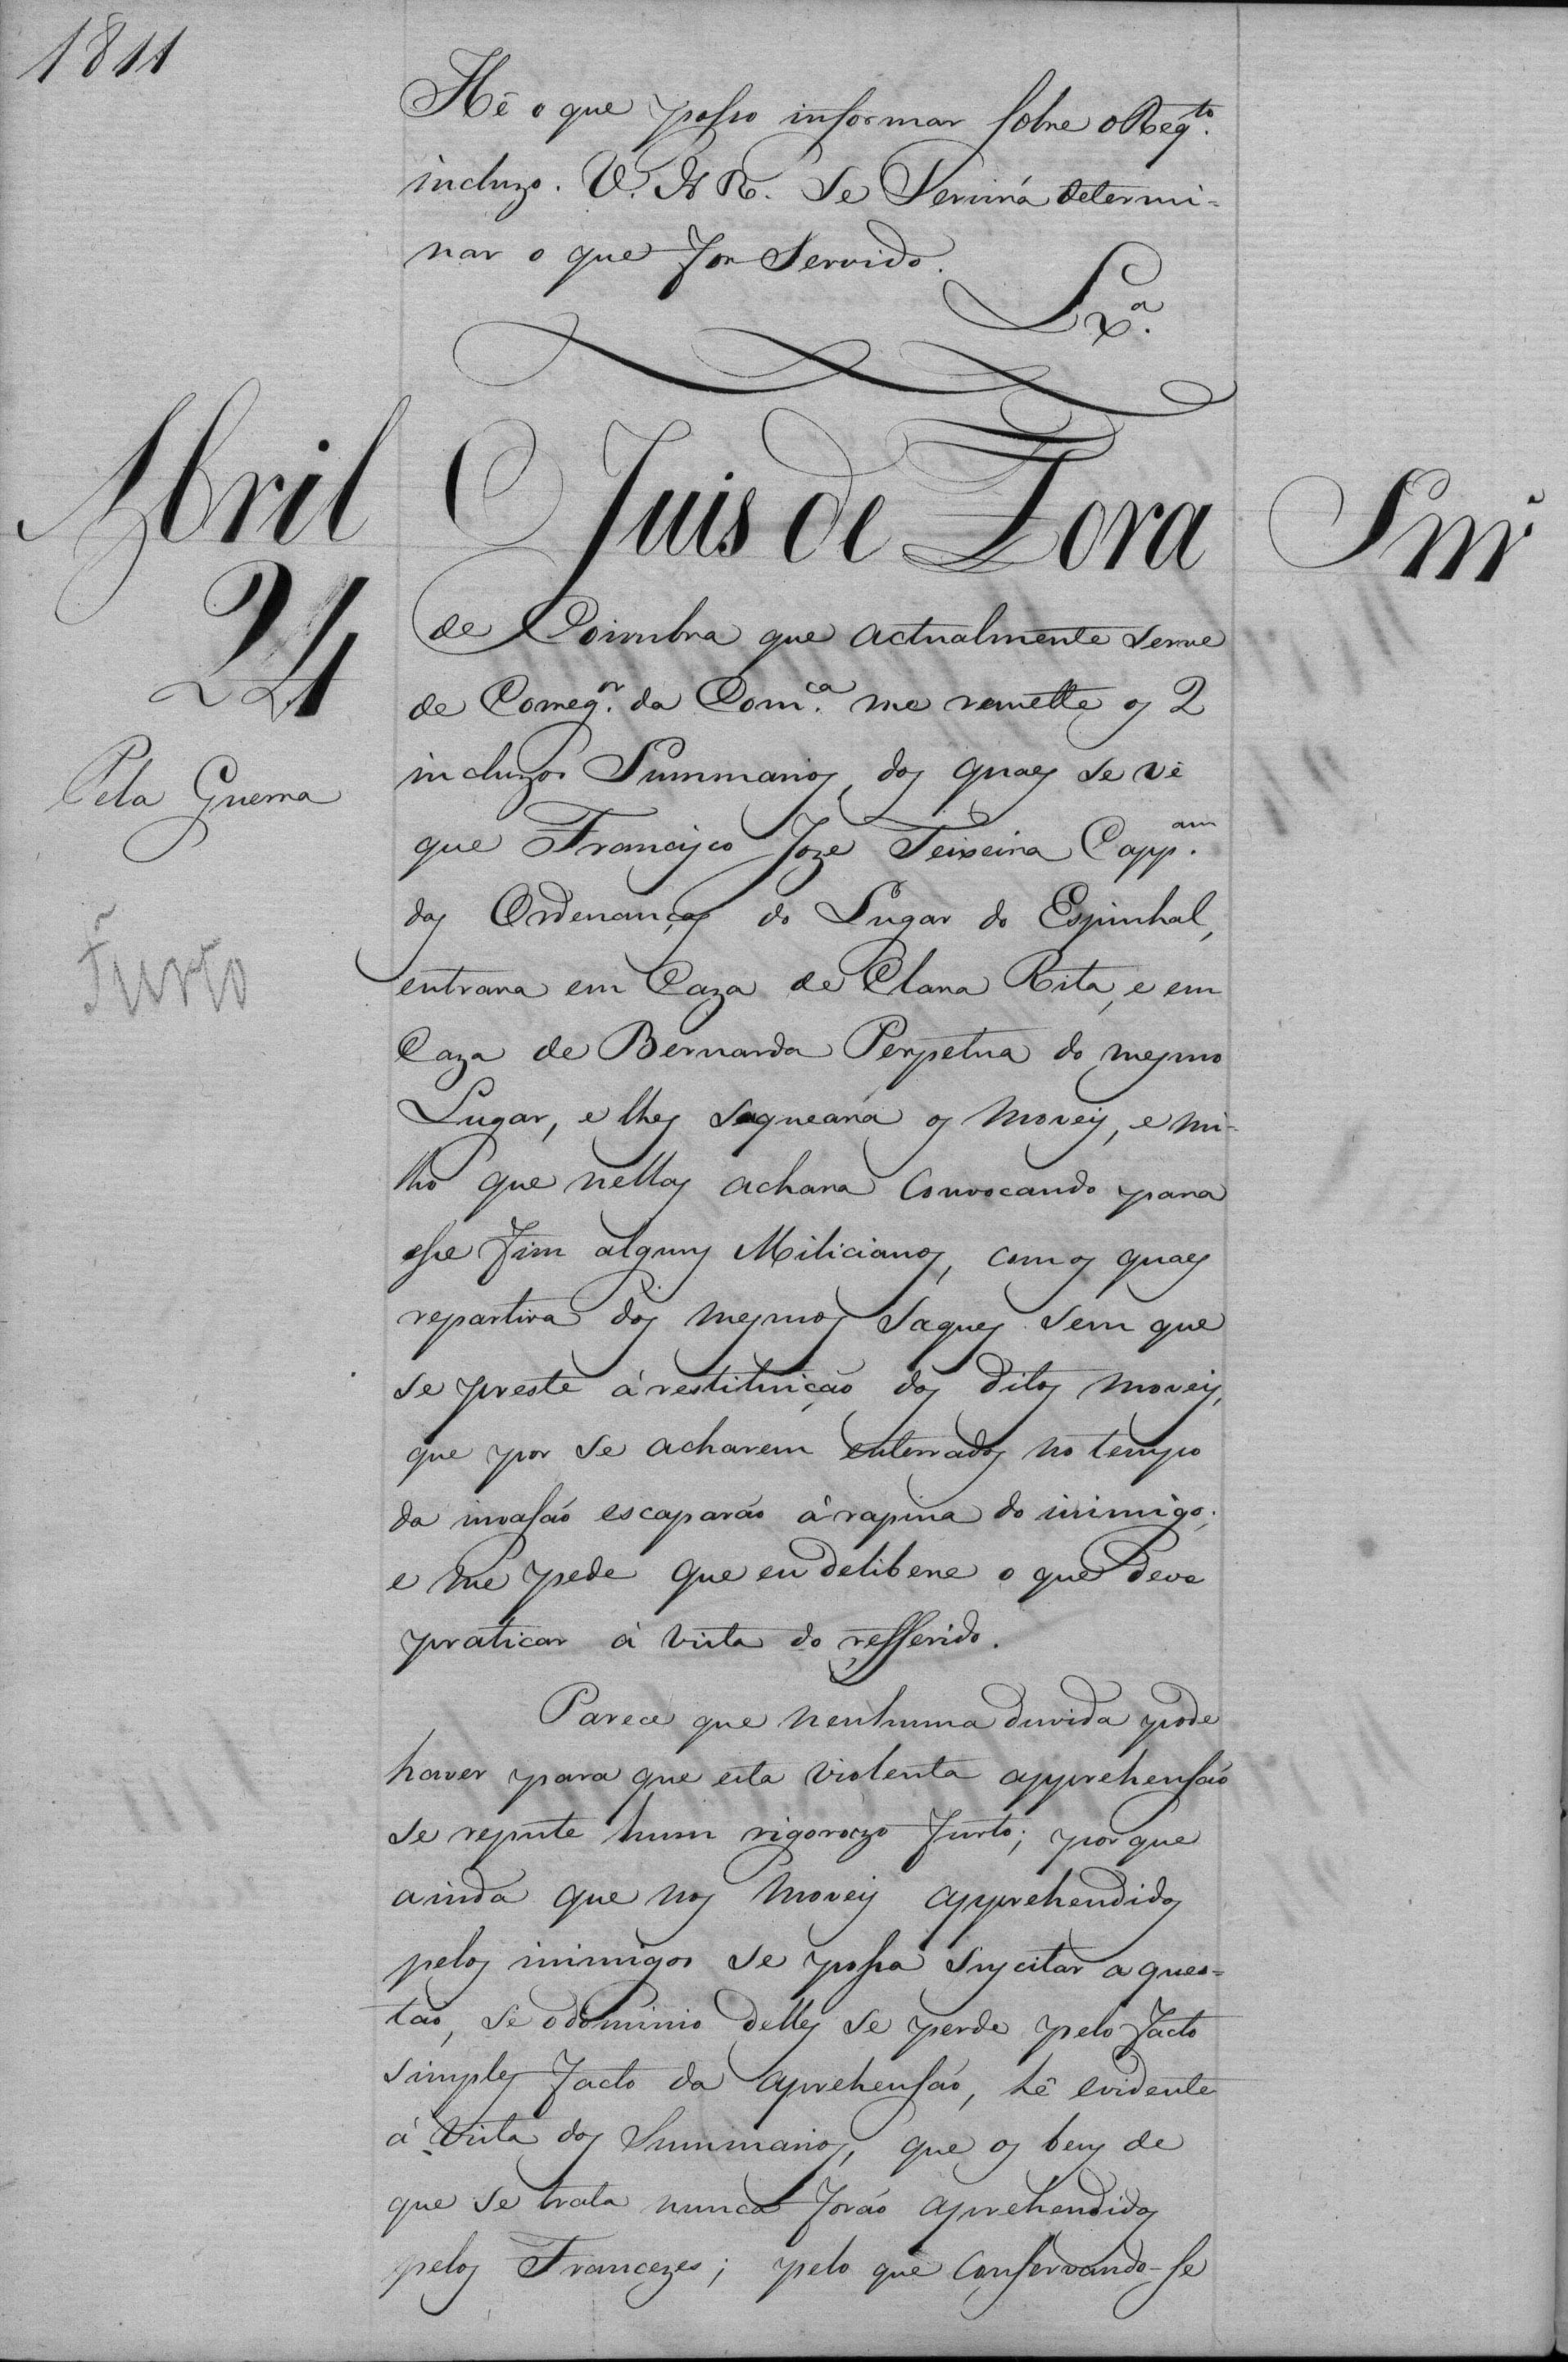 1811
Hé o que posso informar sobre o Req.to
incluzo. V. A R. Se Servirá determi-
nar o que for Servido.
Lx.a
Abril
24
Pela Guerra
Furto
O Juis de Fora
Snr̃
de Coimbra que actualmente serve
de Correg.or da Com.ca me remette os 2
incluzos Summarios, dos quaes se vê
que Francisco Joze Teixeira Capp.am
das Ordenanças do Lugar do Espinhal,
entrara em Caza de Clara Rita, e em
Caza de Bernarda Perpetua do mesmo
Lugar, e lhes saqueára os moveis, e mi-
lho que nellas achara convocando para
esse fim alguns Milicianos, com os quaes
repartira dos mesmos saques sem que
se preste á restituição dos ditos moveis,
que por se acharem enterrados no tempo
da invasão escaparão á rapina do inimigo;
e me pede que eu delibere o que deve
praticar á vista do refferido.
Parece que nenhuma duvida pode
haver para que esta violenta apprehensão
se repute hum rigorozo furto; por que
ainda que nos moveis apprehendidos
pelos inimigos se possa suscitar a ques-
tão, se o dominio delles se perde pelo facto
simples facto da aprehensão, hé evidente
á vista dos Summarios, que os bens de
que se trata nunca forão aprehendidos
pelos Francezes; pelo que conservando-se